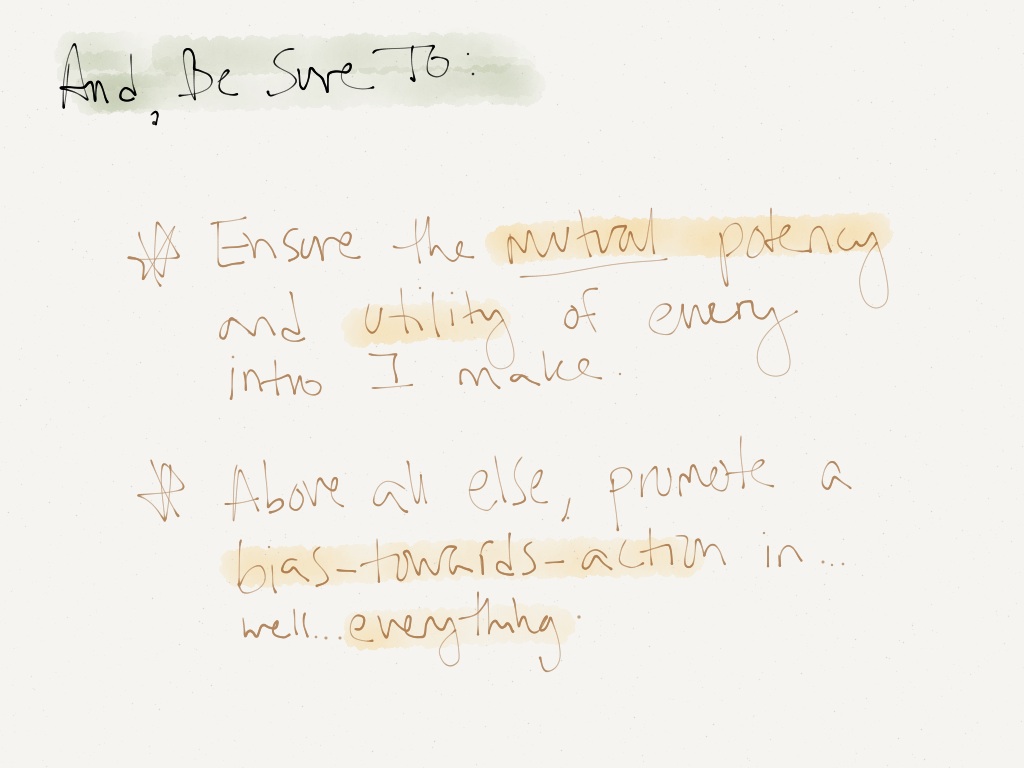 And, Be Sure To:
* Ensure the mutual potency
and utility of every
intro I make.
* Above all else, promote a
bias-towards-action in...
well...everything.